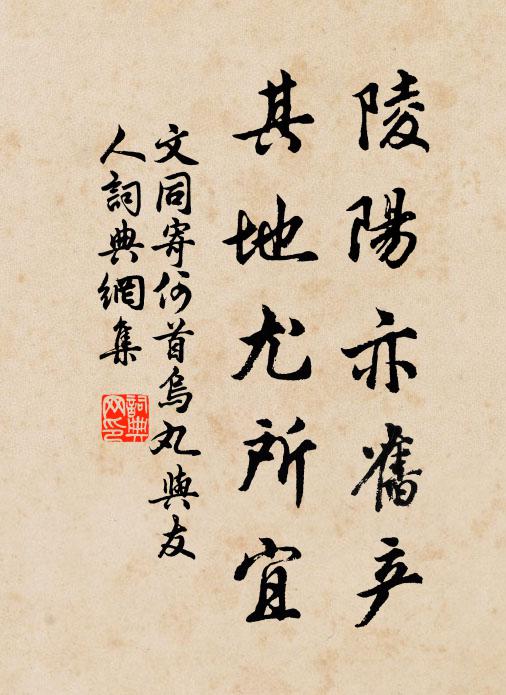 陵陽亦舊产
其地尤所宜
文同寄何首烏丸與友
人詞典網集
詞典网印